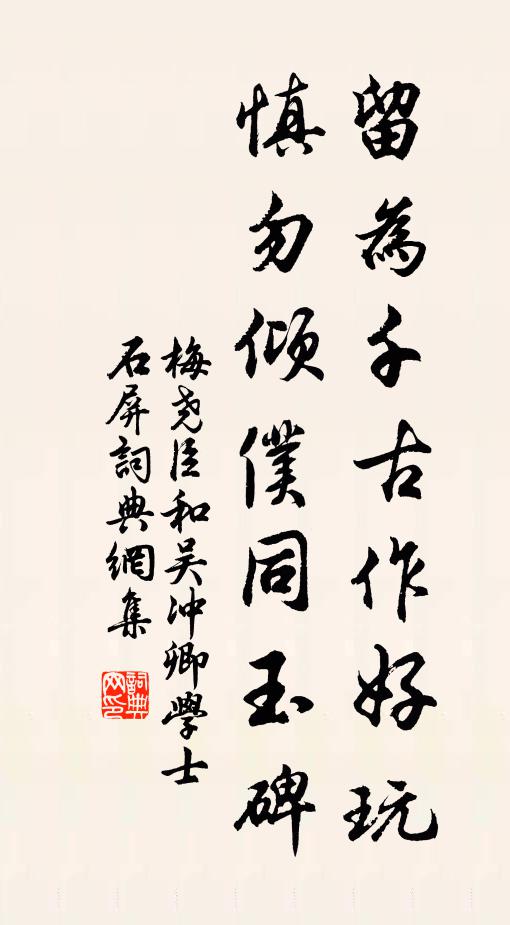 留為千古作好玩
慎勿傾僕同玉碑
梅堯臣和吴冲卿學士
石屏詞典網集
詞典网印